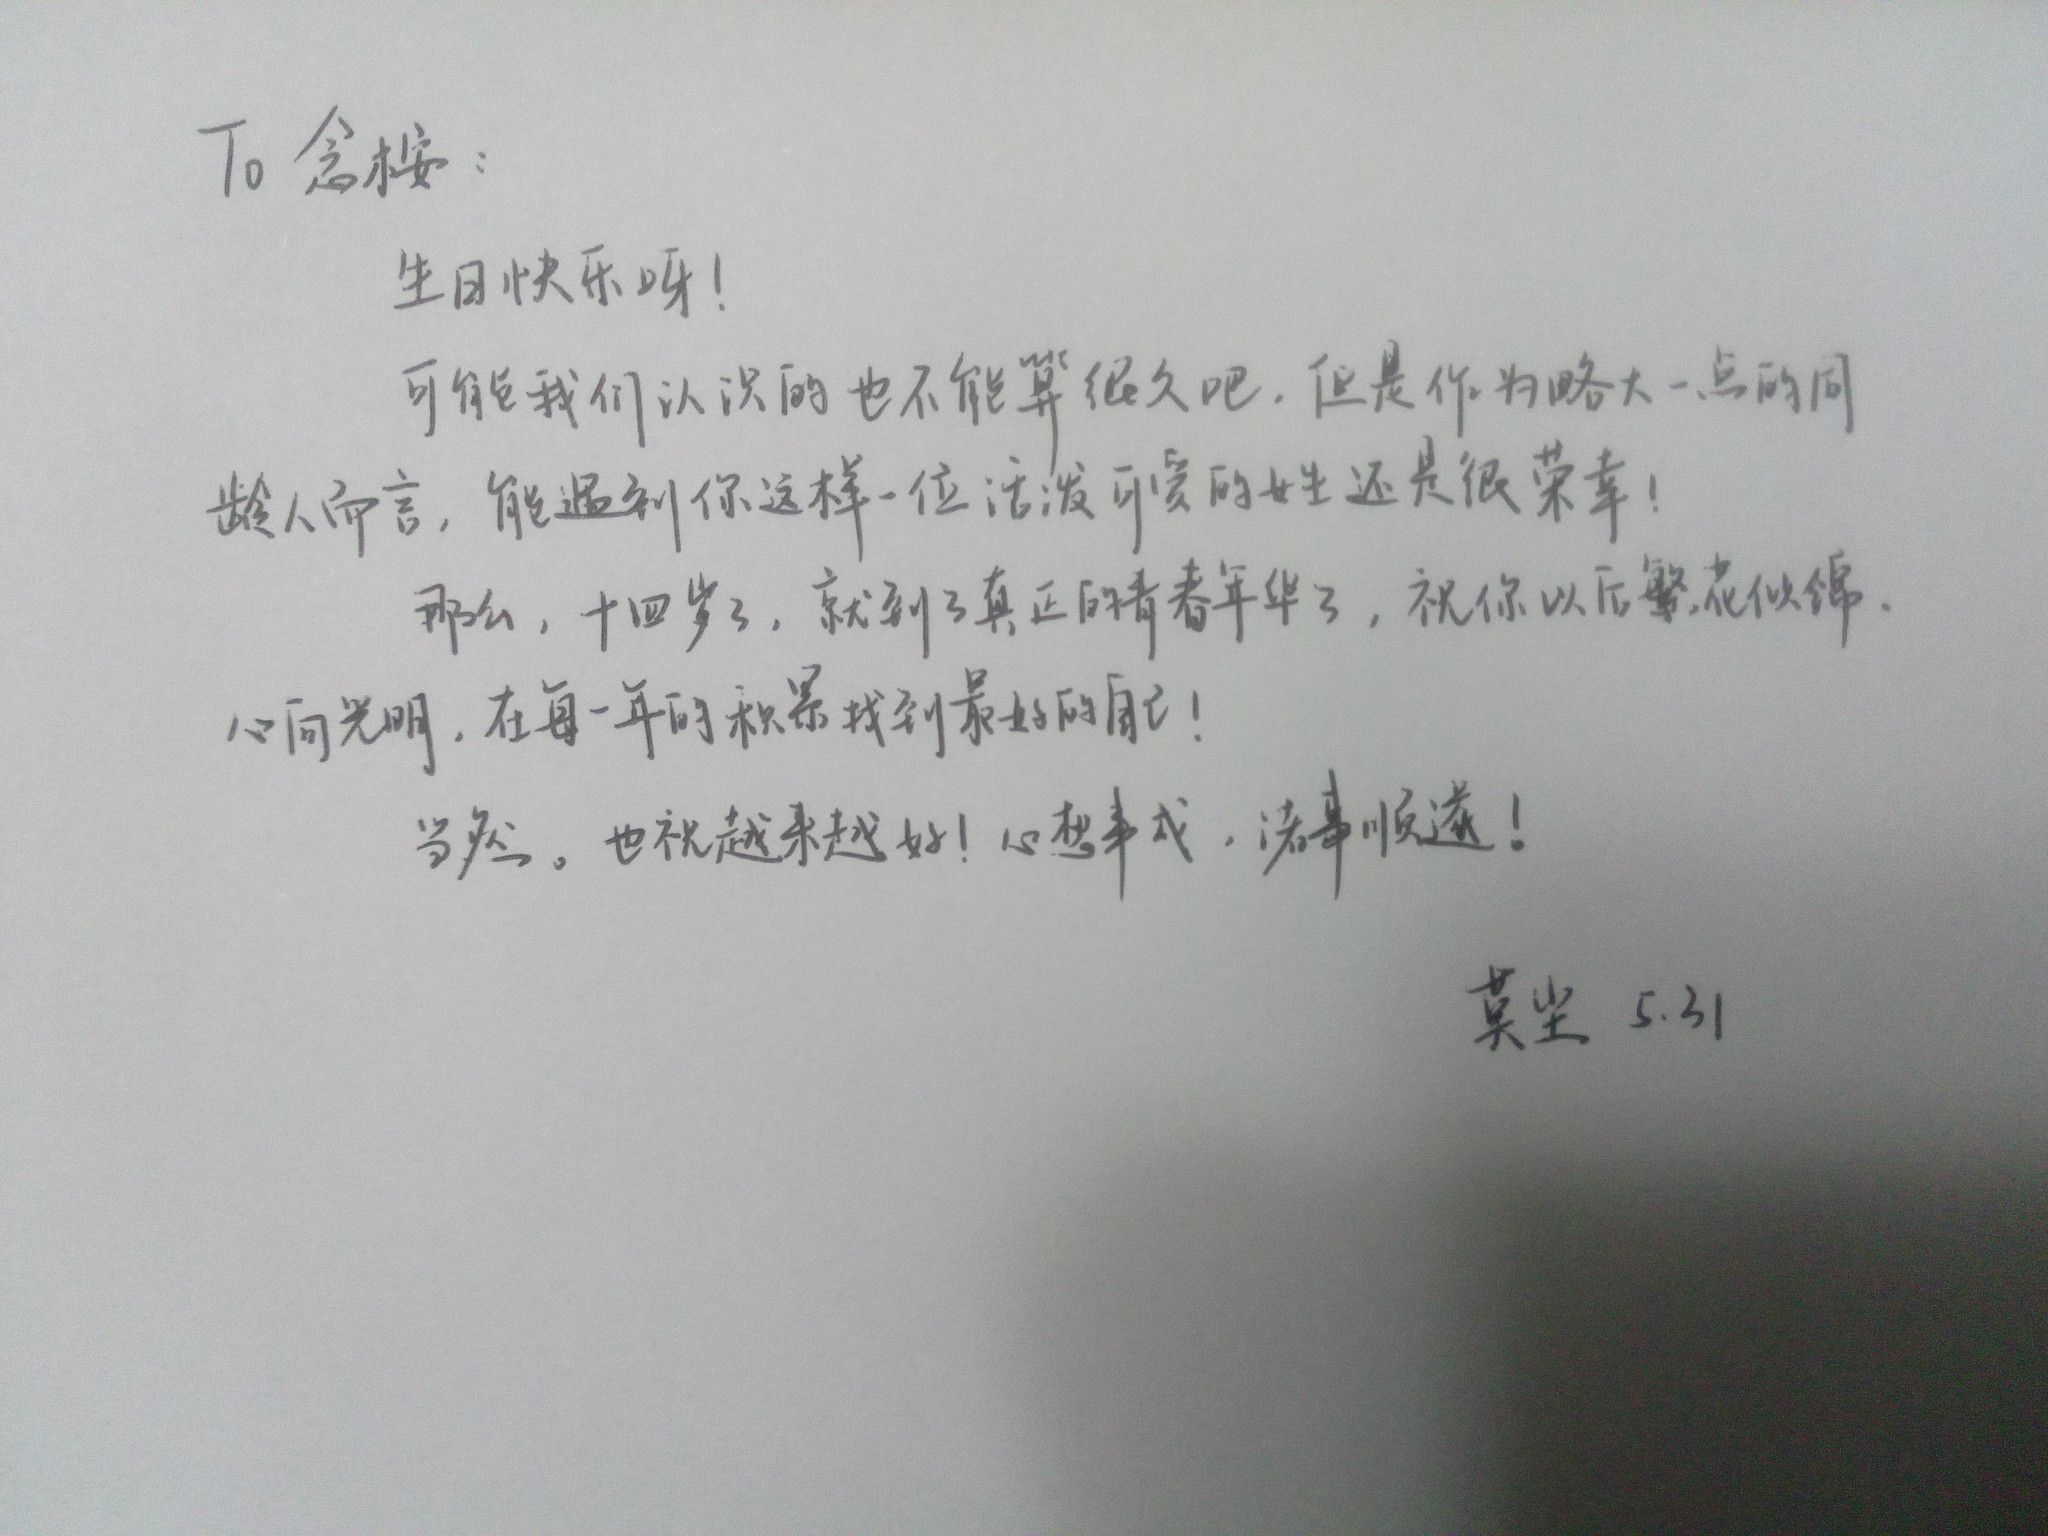 To 念桉：
生日快乐呀！
可能我们认识的也不能算很久吧，但是作为略大一点的同
龄人而言，能遇到你这样一位活泼可爱的女生还是很荣幸！
那么，十四岁了，就到了真正的青春年华了，祝你以后繁花似锦、
心向光明，在每一年的积累找到最好的自己！
当然。也祝越来越好！心想事成，诸事顺遂！
莫尘 5.31